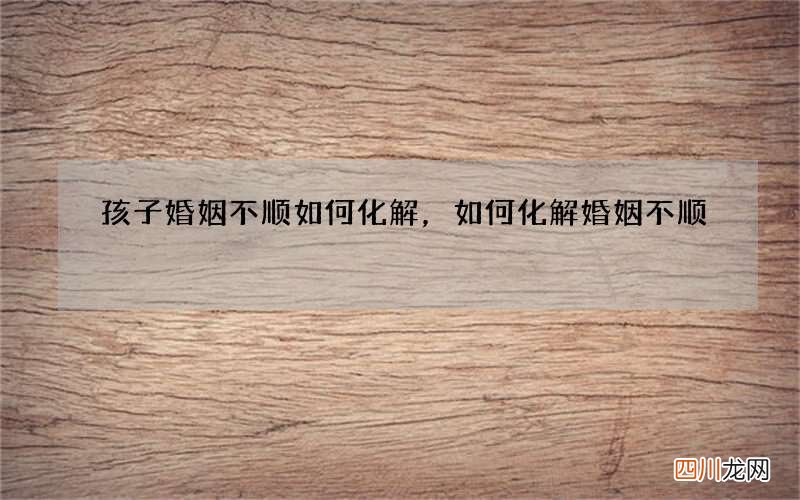 孩子婚姻不顺如何化解，如何化解婚姻不顺
四川龙网